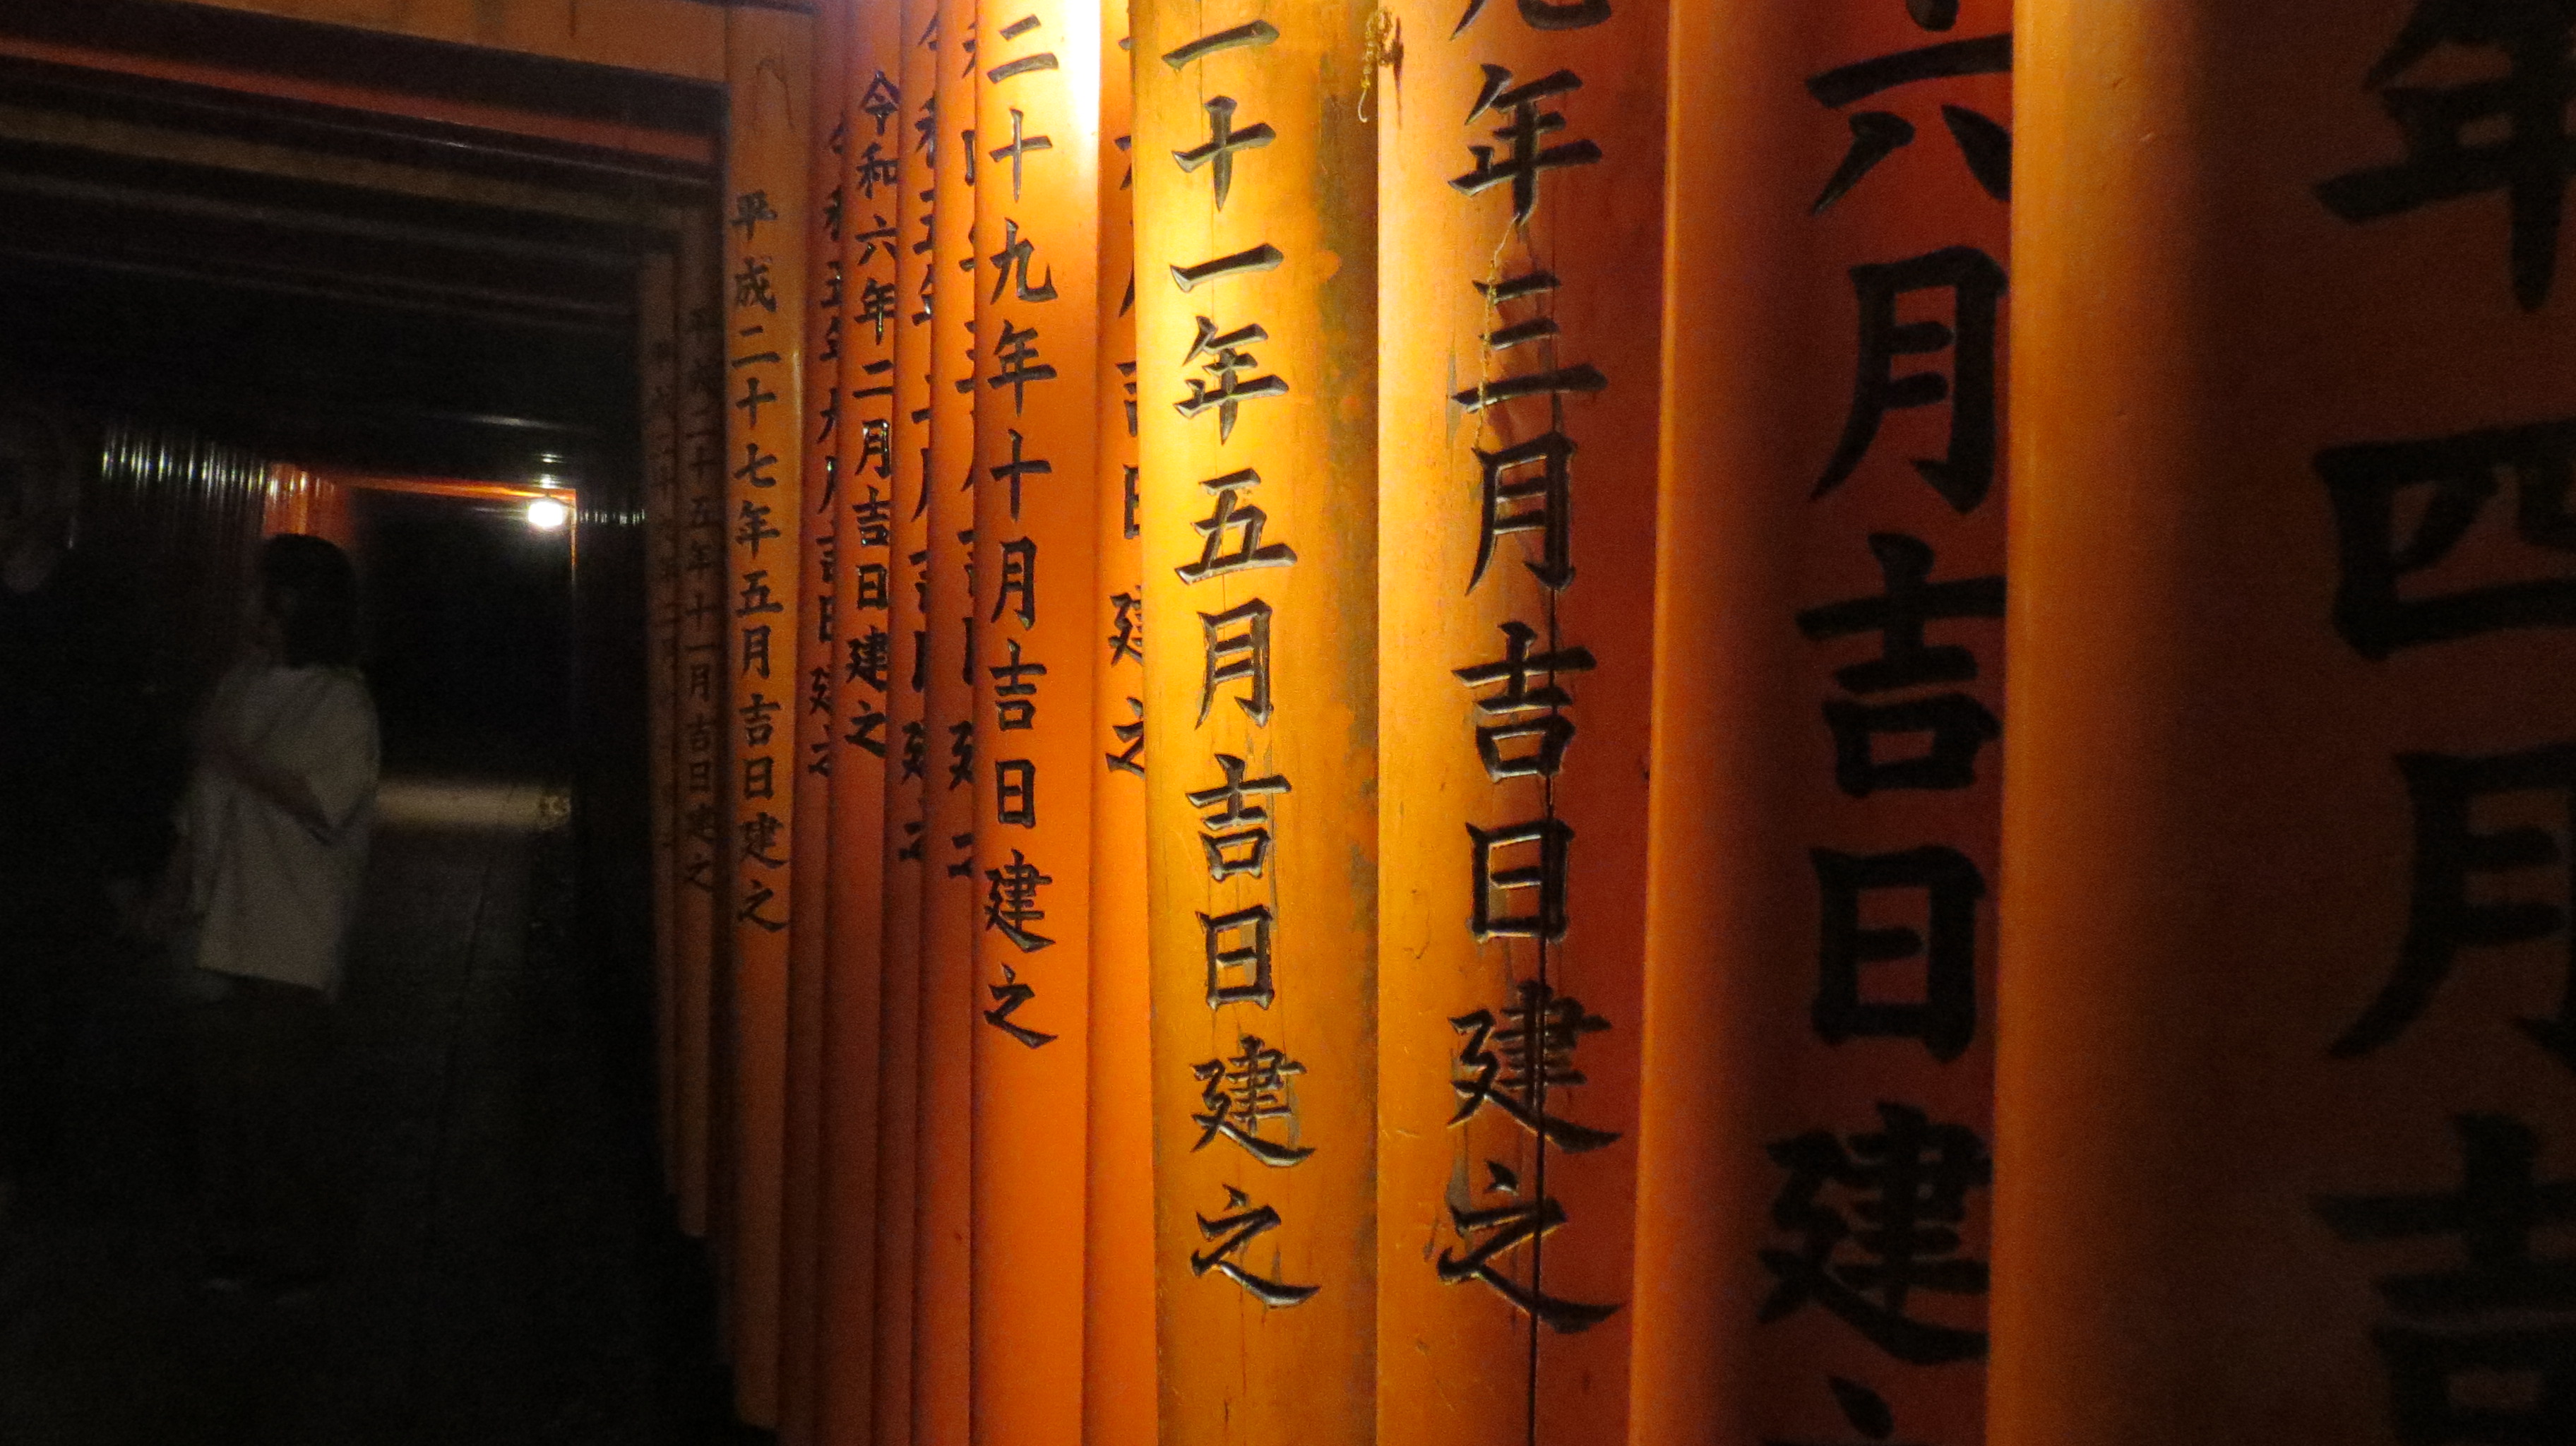 年四月吉
六月吉日建
年三月吉日建之
十一年五月吉日建之
吉日建之
二十九年十月吉日建之
月吉日建之
月吉日建之
令和六年二月吉日建之
令和五年九月吉日建之
平成二十七年五月吉日建之
平成二十五年十一月吉日建之